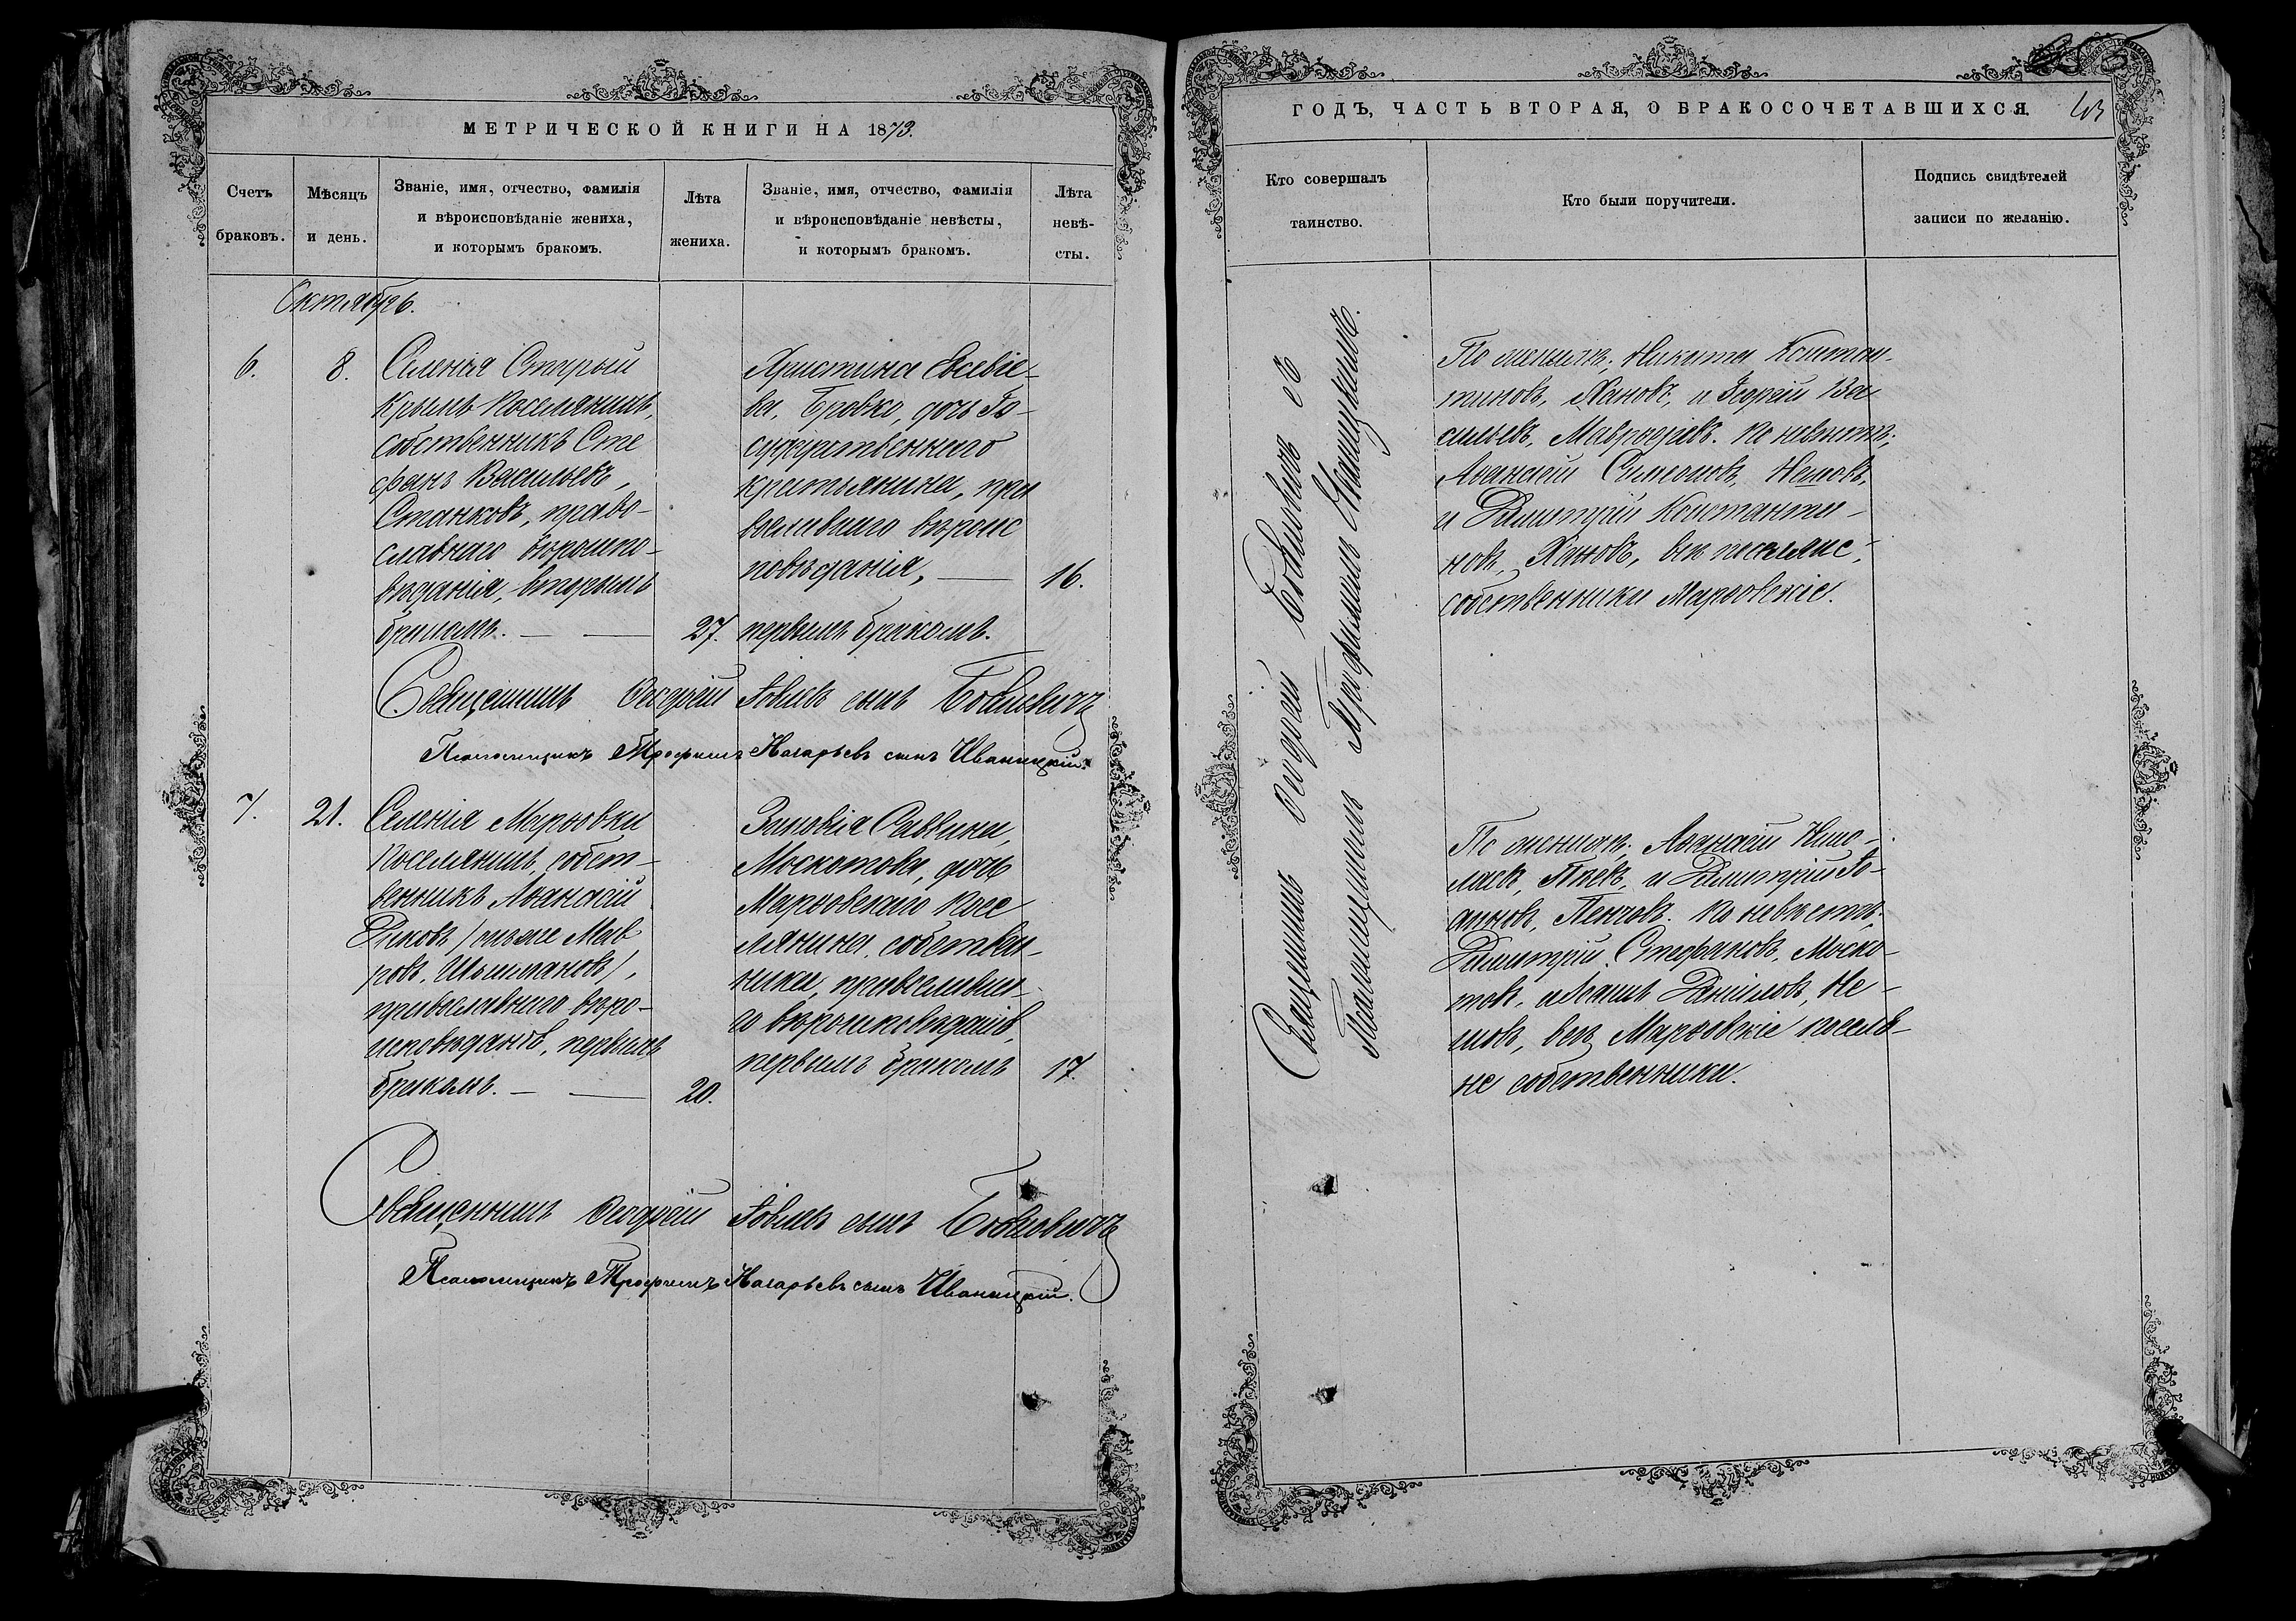 МЕТРИЧЕСКОЙ КНИГИ НА 1873.
Счетъ браковъ.
Мѣсяцъ и день.
Званіе, имя, отчество, фамилія
и вѣроисповѣданіе жениха,
и которымъ бракомъ.
Лѣта жениха.
Званіе, имя, отчество, фамилія
и вѣроисповѣданіе невѣсты,
и которымъ бракомъ.
Лѣта невѣ-
сты.
Октябрь.
6.
8.
Селенія Старый
Крымъ поселянинъ,
собственникъ Сте
фанъ Васильевъ,
Станковъ, право-
славнаго вѣроиспо-
вѣданія, вторымъ
бракомъ. — —
27.
Христина
ва, Бровко, дочь Го-
сударственнаго
крестьянина, пра
вославнаго вѣроис
повѣданія, —
первымъ бракомъ.
16.
Священникъ Θеодрій Іовлевъ сынъ
Псаломщикъ Трофимъ Назарьевъ сынъ Иваницкій.
7.
21.
Селенія Маріовки
поселянинъ, собст-
венникъ Аѳанасій
/ онъ же Мав
ровъ,
православнаго вѣро-
исповѣданія, первымъ
бракомъ. — —
20.
Зиновія Саввина,
Москотова, дочь
посе
лянина, собствен-
ника, православна-
го вѣроисповѣданія,
первымъ бракомъ
17.
Священникъ Іовлевъ сынъ
Псаломщикъ Трофимъ Назарьевъ сынъ Иваницкій.
ГОДЪ, ЧАСТЬ ВТОРАЯ, О БРАКОСОЧЕТАВШИХСЯ.
Кто совершалъ
таинство.
Кто были поручители.
Подпись свидѣтелей
записи по желанію.
Священникъ съ
Псаломщикомъ Трофимомъ Иваницкимъ.
По женихѣ: Никита Констан-
тиновъ, Хановъ, и Георгій Ва
сильевъ, по невѣстѣ:
Аѳанасій Симеоновъ, Нешовъ,
и Димитрій Константи-
новъ, Хановъ, всѣ поселяне,
собственники
По женихѣ: Аѳанасій Нико-
лаевъ, и Димитрій Іо-
анновъ, Пенчовъ. По невѣстѣ:
Димитрій Стефановъ, Моско-
товъ, Даніиловъ, Не-
шовъ, всѣ поселя-
не собственники.